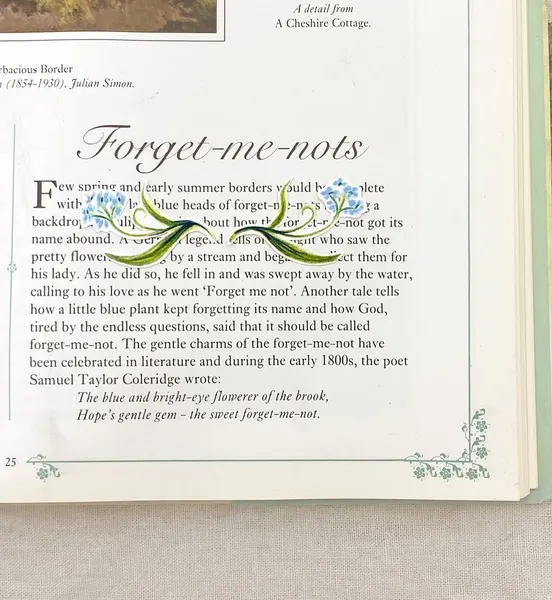 A detail from
A Cheshire Cottage.
rbacious Border
(1854-1930), Julian Simon.
Forget-me-nots
Few spring and early summer borders would be
with blue heads of forget-me-nots a
about how the forget-me-not got its
name abound. A German legend tells of who saw the
pretty by a stream and them for
his lady. As he did so, he fell in and was swept away by the water,
calling to his love as he went ‘Forget me not’. Another tale tells
how a little blue plant kept forgetting its name and how God,
tired by the endless questions, said that it should be called
forget-me-not. The gentle charms of the forget-me-not have
been celebrated in literature and during the early 1800s, the poet
Samuel Taylor Coleridge wrote:
The blue and bright-eye flowerer of the brook,
Hope's gentle gem - the sweet forget-me-not.
25